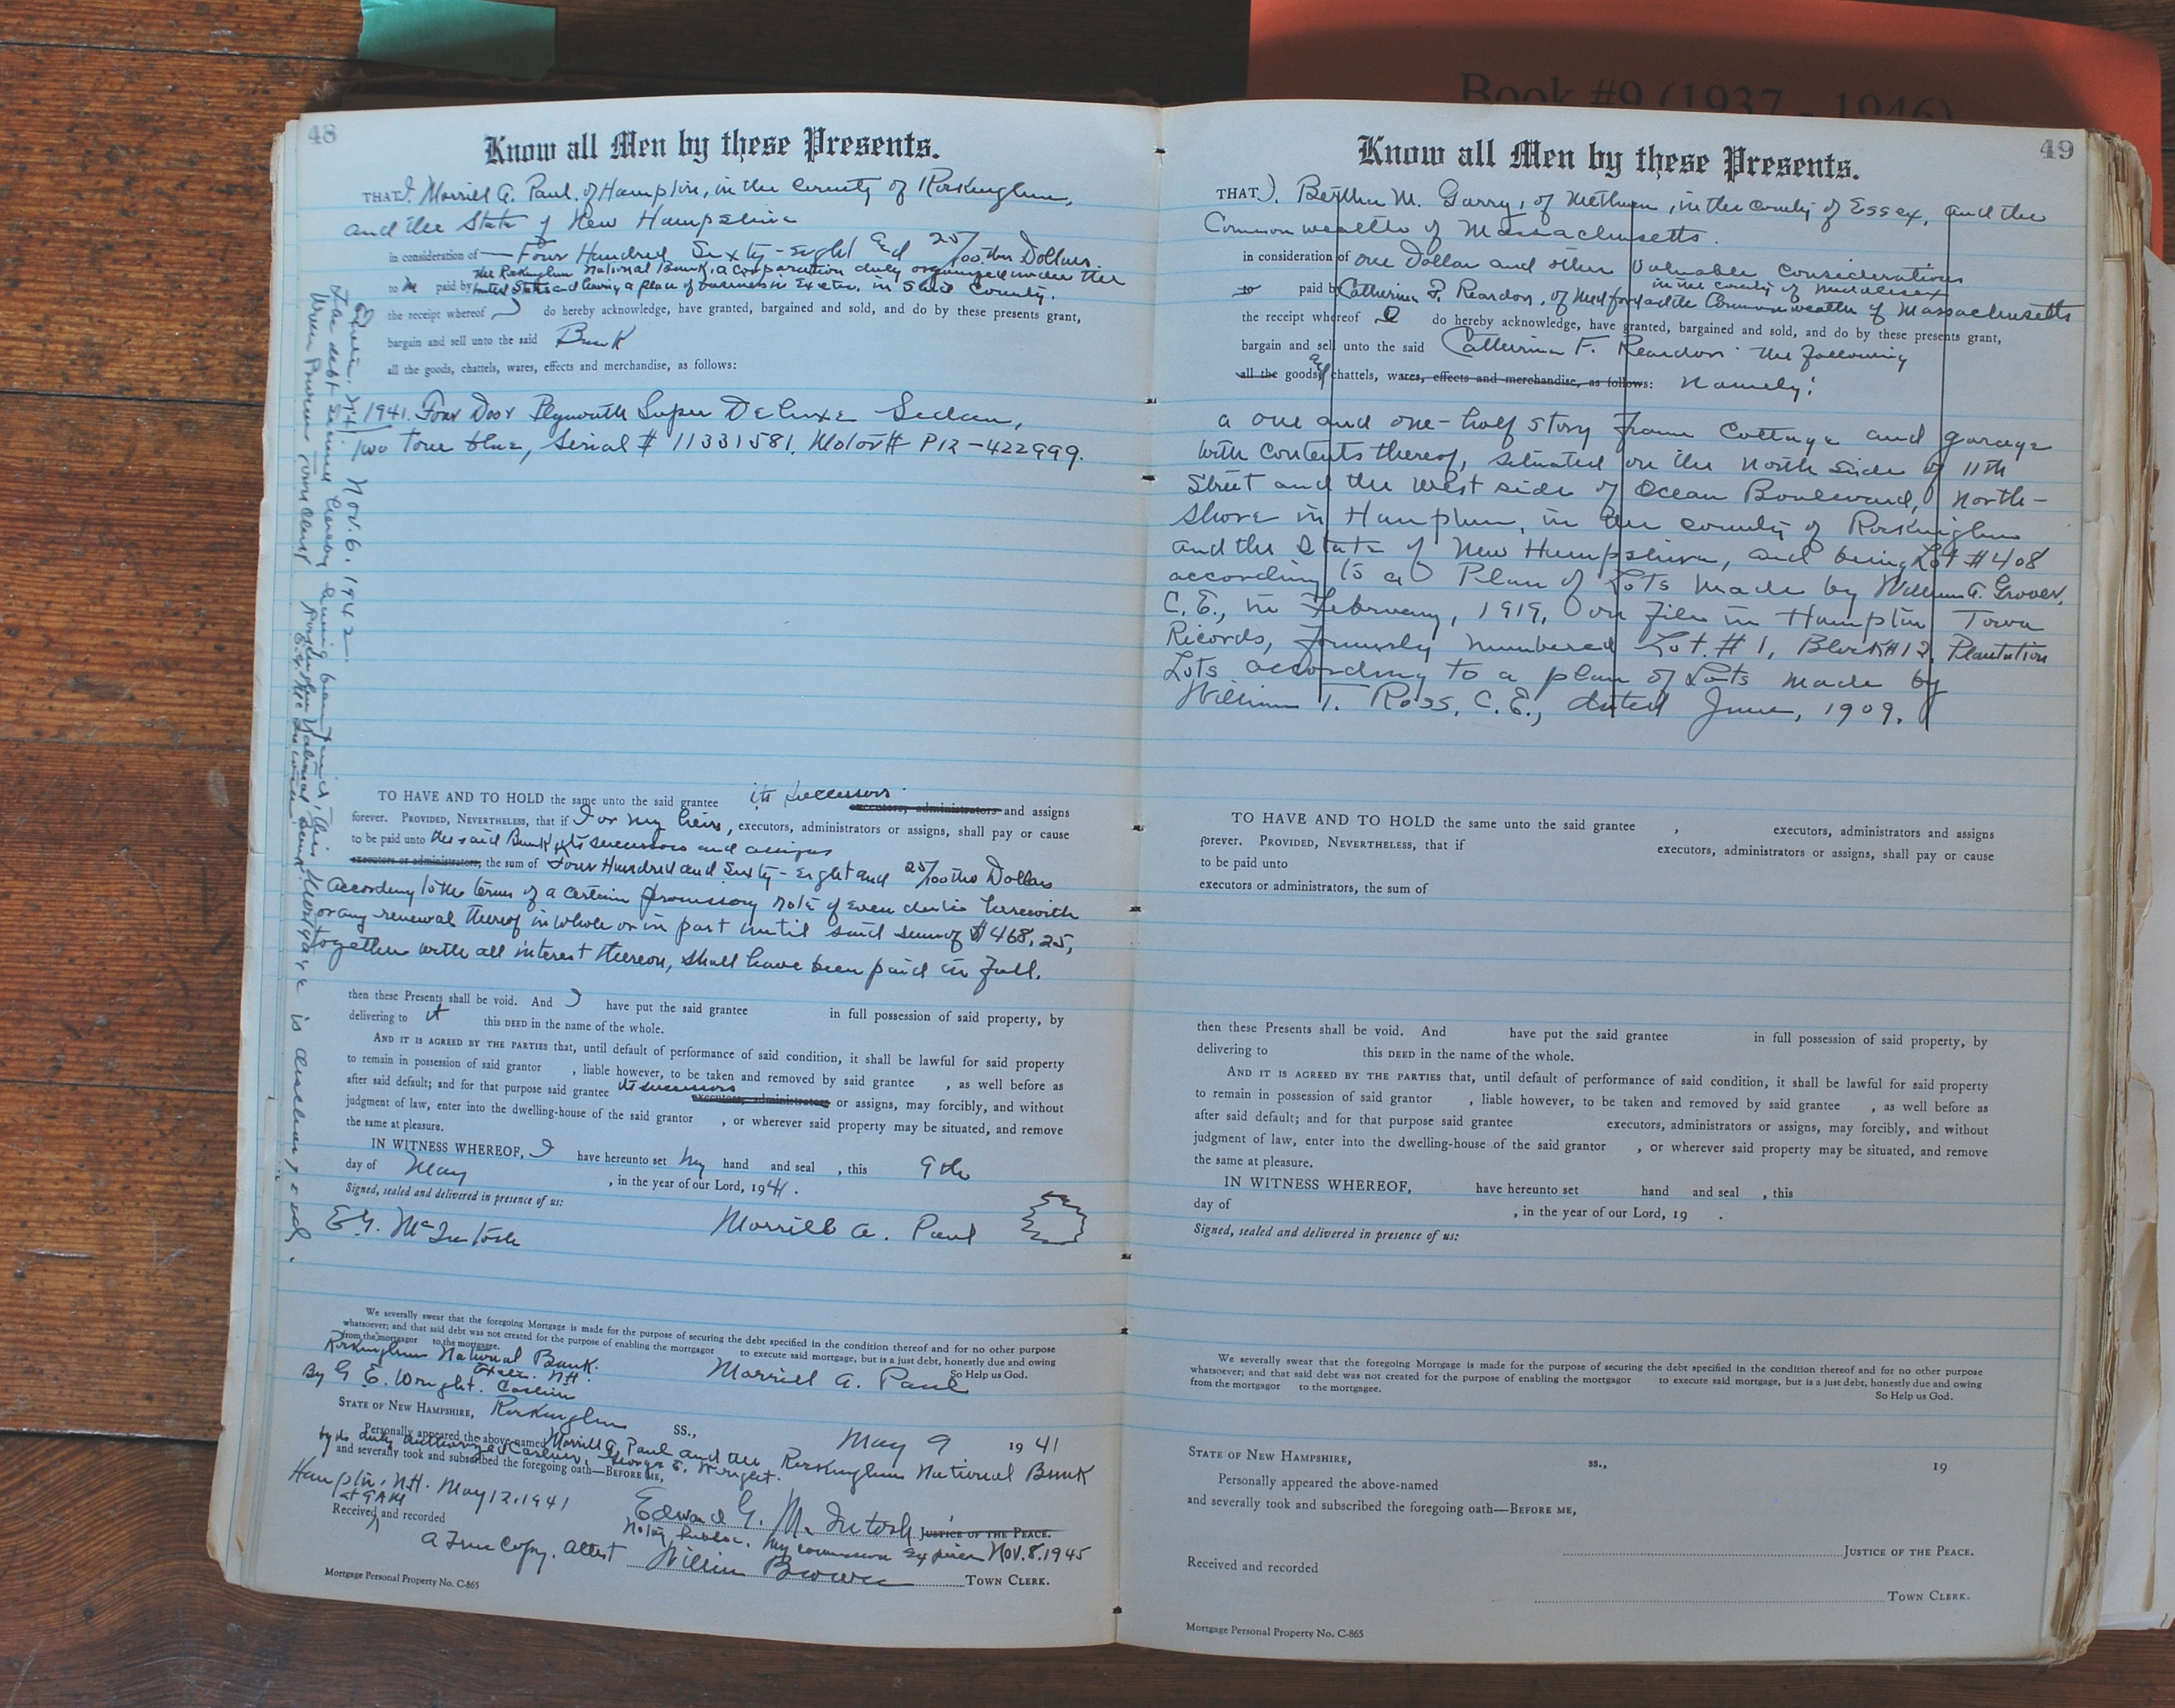 Book #9 (1937 - 1946)
48
Know all Men by these Presents.
THAT I, Morrill A. Paul, of Hampton, in the County of Rockingham,
and the State of New Hampshire
in consideration of — Four Hundred Sixty-eight and 25/100ths Dollars
the Rockingham National Bank, a corporation duly organized under the
to me paid by United States and having a place of business in Exeter, in said County.
the receipt whereof I do hereby acknowledge, have granted, bargained and sold, and do by these presents grant,
bargain and sell unto the said Bank
all the goods, chattels, wares, effects and merchandise, as follows:
1941. Four Door Plymouth Super DeLuxe Sedan,
two tone blue, Serial # 11331581, Motor # P12-422999.
TO HAVE AND TO HOLD the same unto the said grantee its successors executors, administrators and assigns
forever. PROVIDED, NEVERTHELESS, that if I or my heirs, executors, administrators or assigns, shall pay or cause
to be paid unto the said Bank its successors and assigns
executors or administrators, the sum of Four Hundred and Sixty-Eight and 25/100ths Dollars
according to the terms of a certain promissory note of even date herewith
or any renewal thereof in whole or in part until said sum of $468.25,
together with all interest thereon, shall have been paid in full.
then these Presents shall be void. And I have put the said grantee in full possession of said property, by
delivering to it this DEED in the name of the whole.
AND IT IS AGREED BY THE PARTIES that, until default of performance of said condition, it shall be lawful for said property
to remain in possession of said grantor , liable however, to be taken and removed by said grantee , as well before as
after said default; and for that purpose said grantee its successors executors, administrators or assigns, may forcibly, and without
judgment of law, enter into the dwelling-house of the said grantor , or wherever said property may be situated, and remove
the same at pleasure.
IN WITNESS WHEREOF, I have hereunto set my hand and seal , this 9th
day of May , in the year of our Lord, 1941.
Signed, sealed and delivered in presence of us:
E.G. McIntosh Morrill A. Paul
We severally swear that the foregoing Mortgage is made for the purpose of securing the debt specified in the condition thereof and for no other purpose
whatsoever; and that said debt was not created for the purpose of enabling the mortgagor to execute said mortgage, but is a just debt, honestly due and owing
from the mortgagor to the mortgagee. So Help us God.
Rockingham National Bank.
Exeter. N.H. Morrill A. Paul
By G. E. Wright. Cashier
STATE OF NEW HAMPSHIRE, Rockingham SS., May 9 1941
Personally appeared the above-named Morrill A. Paul and the Rockingham National Bank
by its duly authorized Cashier, George E. Wright.
and severally took and subscribed the foregoing oath—BEFORE ME,
Hampton, N.H. May 12, 1941
at 9 AM
Edward G. McIntosh JUSTICE OF THE PEACE.
Received and recorded
Notary Public. My commission expires Nov. 8. 1945
A True Copy. Attest William Brown TOWN CLERK.
Mortgage Personal Property No. C-865
Exeter, N.H. Nov. 6. 1942
The debt secured hereby having been paid, this Mortgage is discharged.
Rockingham National Bank
49
Know all Men by these Presents.
THAT I, Bertha M. Garry, of Methuen, in the county of Essex, and the
Commonwealth of Massachusetts.
in consideration of one Dollar and other Valuable considerations
in the county of Middlesex
to paid by Catherine F. Reardon, of Medford and the Commonwealth of Massachusetts
the receipt whereof I do hereby acknowledge, have granted, bargained and sold, and do by these presents grant,
bargain and sell unto the said Catherine F. Reardon the following
all the goods, and chattels, wares, effects and merchandise, as follows: Namely:
a one and one-half story frame cottage and garage
with contents thereof, situated on the north side of 11th
Street and the west side of Ocean Boulevard, North-
shore in Hampton, in the county of Rockingham
and the State of New Hampshire, and being Lot #408
according to a Plan of Lots made by William A. Grover,
C.E., in February, 1919, on file in Hampton Town
Records, formerly numbered Lot #1, Block #12, Plantation
Lots according to a plan of Lots made by
William T. Ross, C.E., dated June, 1909.
TO HAVE AND TO HOLD the same unto the said grantee , executors, administrators and assigns
forever. PROVIDED, NEVERTHELESS, that if executors, administrators or assigns, shall pay or cause
to be paid unto
executors or administrators, the sum of
then these Presents shall be void. And have put the said grantee in full possession of said property, by
delivering to this DEED in the name of the whole.
AND IT IS AGREED BY THE PARTIES that, until default of performance of said condition, it shall be lawful for said property
to remain in possession of said grantor , liable however, to be taken and removed by said grantee , as well before as
after said default; and for that purpose said grantee executors, administrators or assigns, may forcibly, and without
judgment of law, enter into the dwelling-house of the said grantor , or wherever said property may be situated, and remove
the same at pleasure.
IN WITNESS WHEREOF, have hereunto set hand and seal , this
day of , in the year of our Lord, 19 .
Signed, sealed and delivered in presence of us:
We severally swear that the foregoing Mortgage is made for the purpose of securing the debt specified in the condition thereof and for no other purpose
whatsoever; and that said debt was not created for the purpose of enabling the mortgagor to execute said mortgage, but is a just debt, honestly due and owing
from the mortgagor to the mortgagee. So Help us God.
STATE OF NEW HAMPSHIRE, ss., 19
Personally appeared the above-named
and severally took and subscribed the foregoing oath—BEFORE ME,
JUSTICE OF THE PEACE.
Received and recorded
TOWN CLERK.
Mortgage Personal Property No. C-865